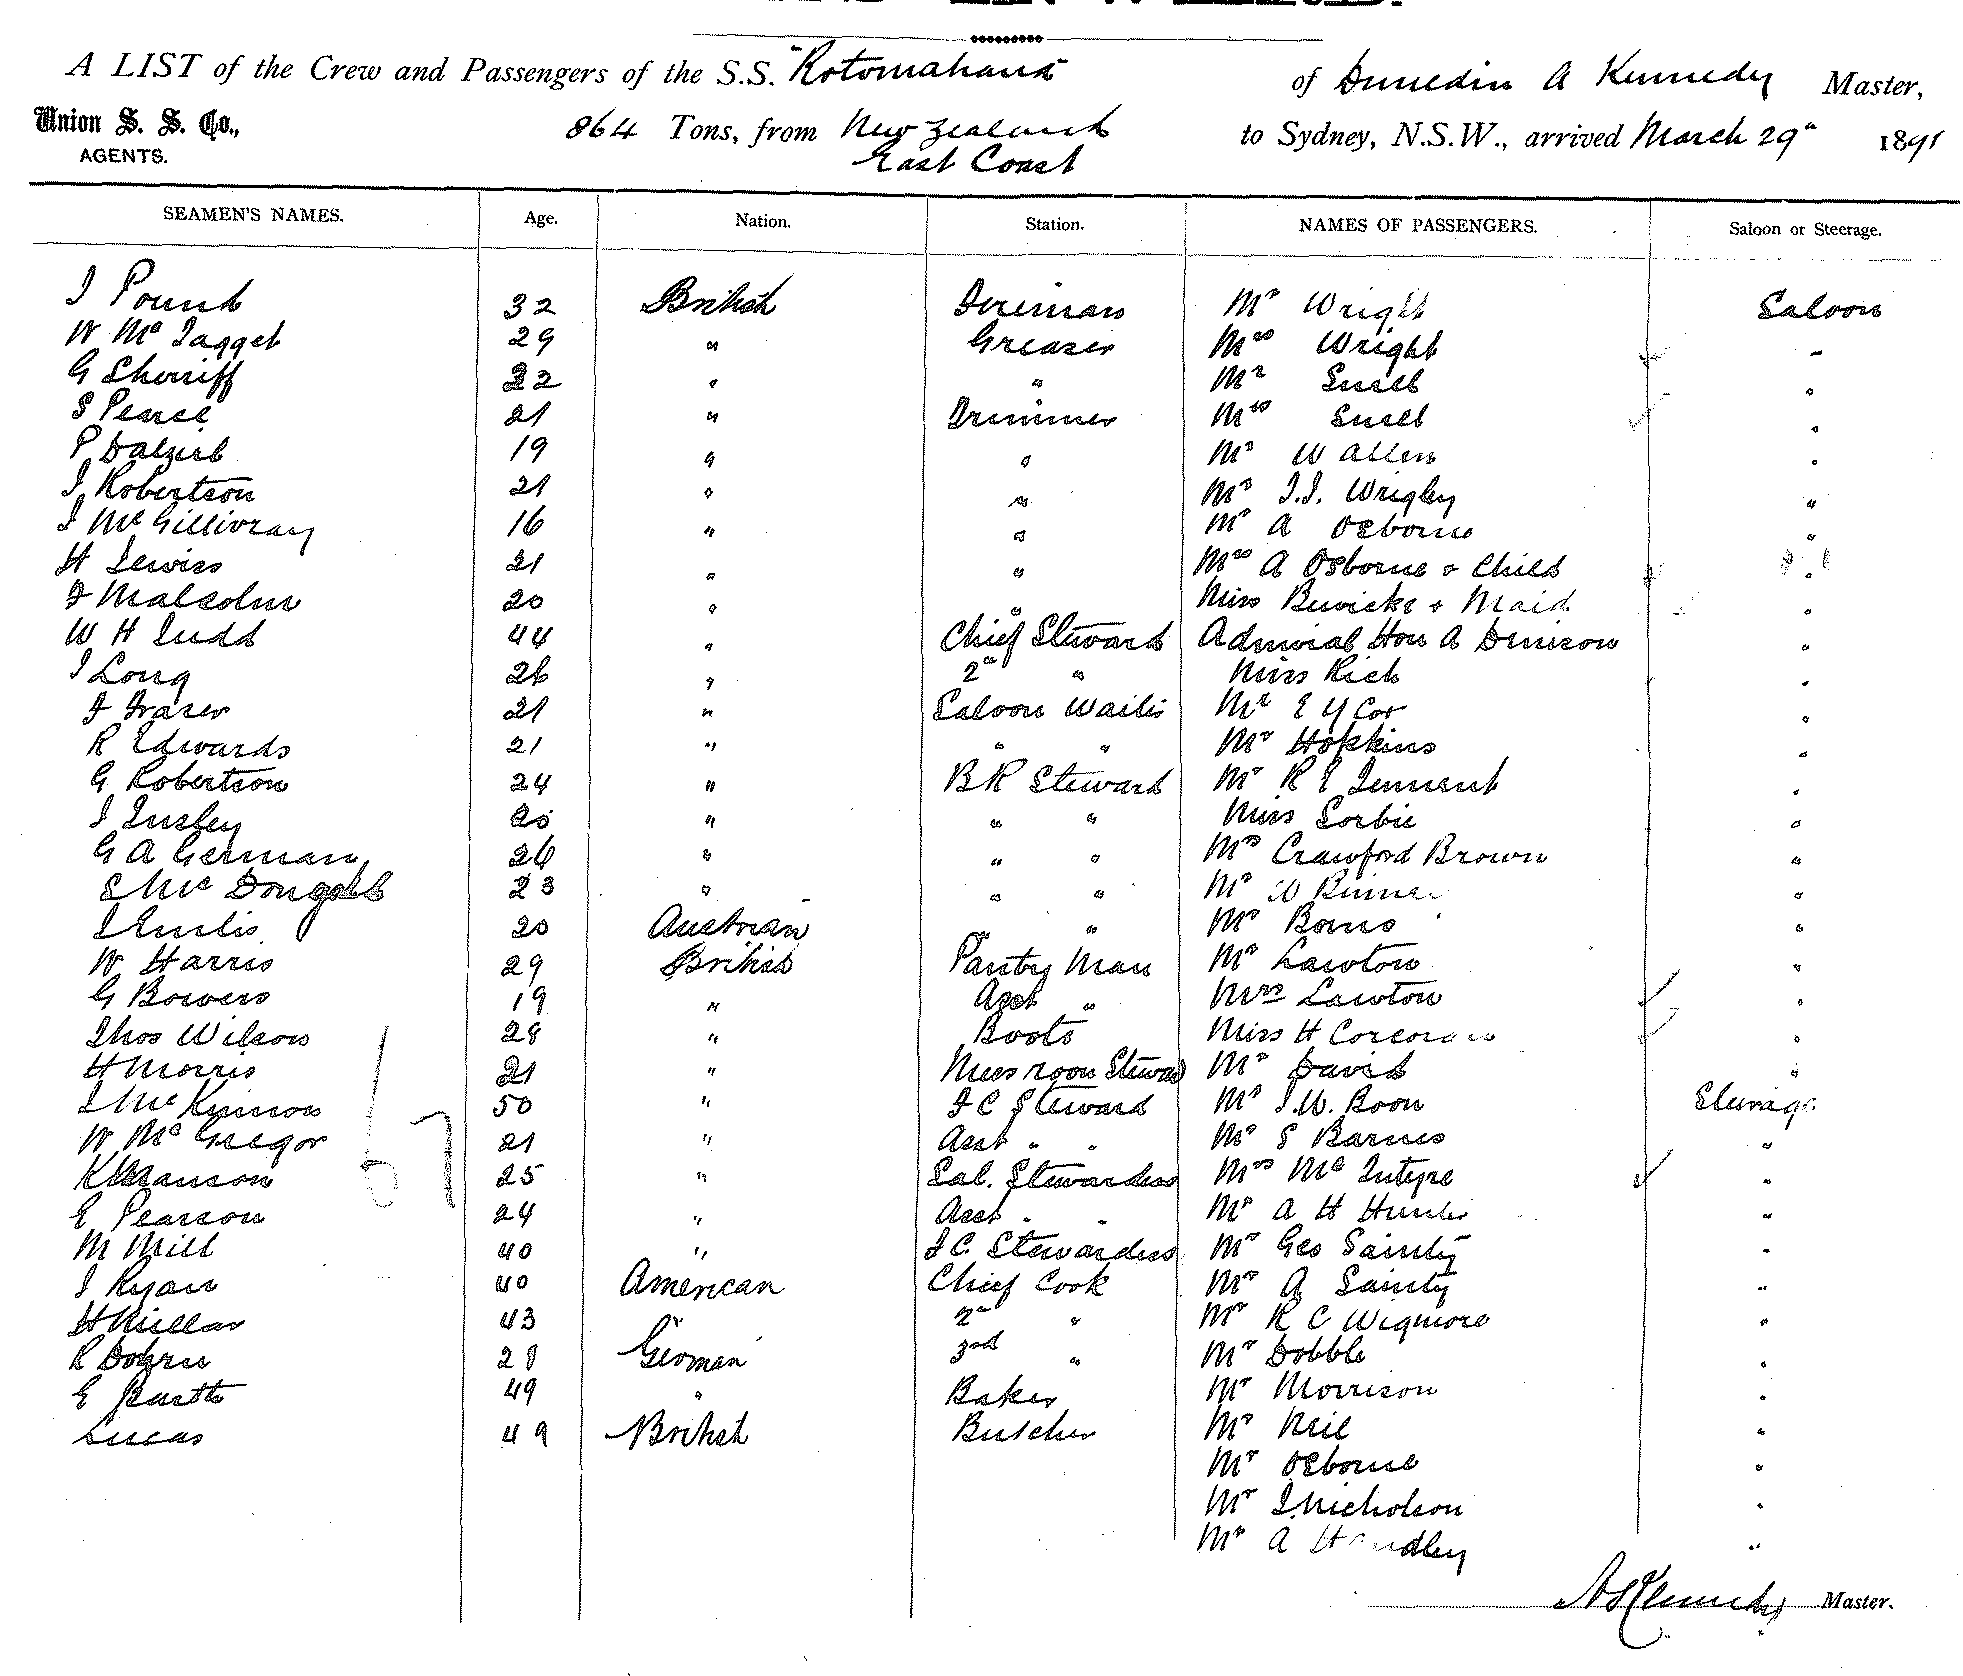 A LIST of the Crew and Passengers of the S.S. "Rotomahana" of Dunedin A Kennedy Master,
Union S. S. Co., 864 Tons, from New Zealand to Sydney, N.S.W., arrived March 29th 1891
AGENTS. East Coast
SEAMEN'S NAMES. Age. Nation. Station. NAMES OF PASSENGERS. Saloon or Steerage.
J Pound 32 British Fireman Mr Wright Saloon
W Mc Tagget 29 " Greaser Mrs Wright "
G Sherriff 22 " " Mr Snell "
S Pearce 21 " Trimmer Mrs Snell "
P Dalzell 19 " " Mr W Allen "
J Robertson 21 " " Mr J.J. Wrigley "
J McGillivray 16 " " Mr A Osborne "
H Lewiss 21 " " Mrs A Osborne & Child "
J Malcolm 20 " " Miss Bewicke & Maid "
W H Judd 44 " Chief Steward Admiral Hon A Denison "
J Long 26 " 2nd " Miss Rich "
J Fraser 21 " Saloon Waiter Mr E Y Cox "
R Edwards 21 " " " Mr Hopkins "
G Robertson 24 " B R Steward Mr R E Tennent "
J Insley 20 " " " Miss Sorbie "
G A German 26 " " " Mrs Crawford Brown "
S Mc Dougall 23 " " " Mr W "
J 20 Austrian " " Mr "
W Harris 29 British Pantry Man Mr Lawton "
G Bowers 19 " Asst " Mrs Lawton "
Thos Wilson 28 " Boots Miss H Corcoran "
H Morris 21 " Mess room Steward Mr David "
J McKinnon 50 " F C Steward Mr J.W. Boon Steerage
W McGregor 21 " Asst " " Mr S Barnes "
K Manson 25 " Sal. Stewardess Mrs McIntyre "
E Pearson 24 " Asst " " Mr A H Hunter "
M Mill 40 " F C. Stewardess Mr Geo Sainty "
J Ryan 40 American Chief Cook Mr A Sainty "
H Millar 43 " 2nd " Mr R C Wigmore "
R 28 German 3rd " Mr Dobble "
E 49 " Baker Mr Morrison "
Lucas 49 British Butcher Mr Neil "
Mr Osborne "
Mr J Nicholson "
Mr A Handley "
A Kennedy Master.